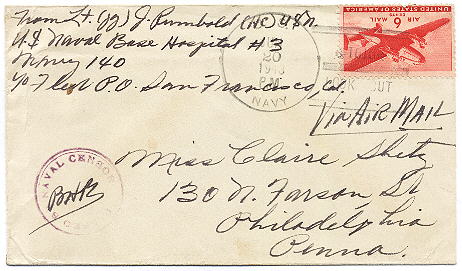 From Lt. (jg) J. Rumbold (NC) USN
US Naval Base Hospital #3
Navy 140
c/o Fleet P.O. San Francisco, Cal.
20
P.M.
NAVY
UNITED STATES OF AMERICA
6¢ AIR MAIL 6¢
Via AIR MAIL
NAVAL CENSOR
Miss Claire Shetz
130 N. Farson St
Philadelphia
Penna.